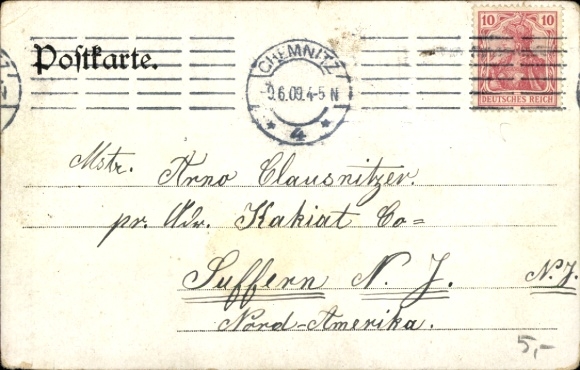 Postkarte.
CHEMNITZ
9.6.09.4-5 N
* 4 *
10 10
DEUTSCHES REICH
Mstr. Arno Clausnitzer.
pr. Adr. Kakiat Co=
Suffern N. J. N. J.
Nord-Amerika.
5,-